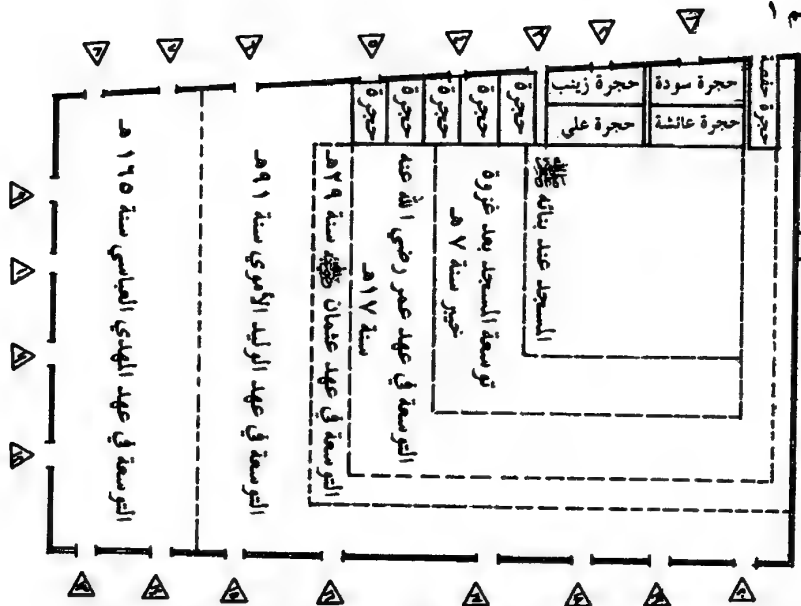 م ١
حجرة حفصة
حجرة سودة
حجرة زينب
حجرة عائشة
حجرة علي
حجرة
حجرة
حجرة
حجرة
حجرة
المسجد عند بنائه ﷺ
توسعة المسجد بعد غزوة
خيبر سنة ٧ هـ
التوسعة في عهد عمر رضي الله عنه
سنة ١٧هـ
التوسعة في عهد عثمان رضي الله عنه سنة ٢٩ هـ
التوسعة في عهد الوليد الأموي سنة ٩١ هـ
التوسعة في عهد المهدي العباسي سنة ١٦٥ هـ